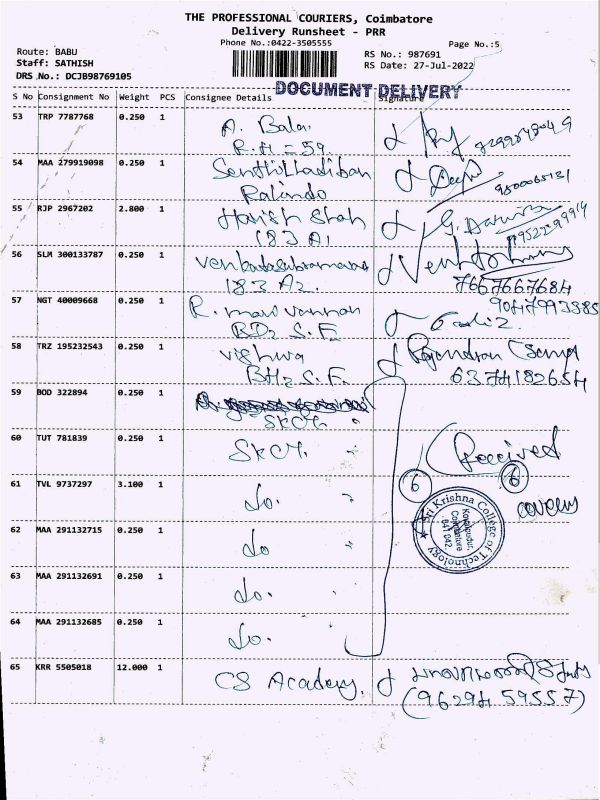 THE PROFESSIONAL COURIERS, Coimbatore
Delivery Runsheet - PRR
Phone No.:0422-3505555
Page No.:5
Route: BABU
Staff: SATHISH
DRS No.: DCJB98769105
RS No.: 987691
RS Date: 27-Jul-2022
DOCUMENT DELIVERY
S No Consignment No Weight PCS Consignee Details Signature
53 TRP 7787768 0.250 1 A. Balaji
R.H - 59
54 MAA 279919098 0.250 1 Senthilladiban
55 RJP 2967202 2.800 1 Harish Shah
183 A1
56 SLM 300133787 0.250 1
183 A2
7667667684
57 NGT 40009668 0.250 1 R.
BD2 S.F.
9047993385
58 TRZ 195232543 0.250 1 Vishwa Rajendran
BH2 S.F. 6374182654
59 BOD 322894 0.250 1
SKCT "
60 TUT 781839 0.250 1 SKCT. " Received
61 TVL 9737297 3.100 1 do. "
6 6
covers
Sri Krishna College of Technology
Kovaipudur,
Coimbatore
641 042
62 MAA 291132715 0.250 1 do "
63 MAA 291132691 0.250 1 do.
64 MAA 291132685 0.250 1 do.
65 KRR 5505018 12.000 1 CS Academy
(96294 59557)